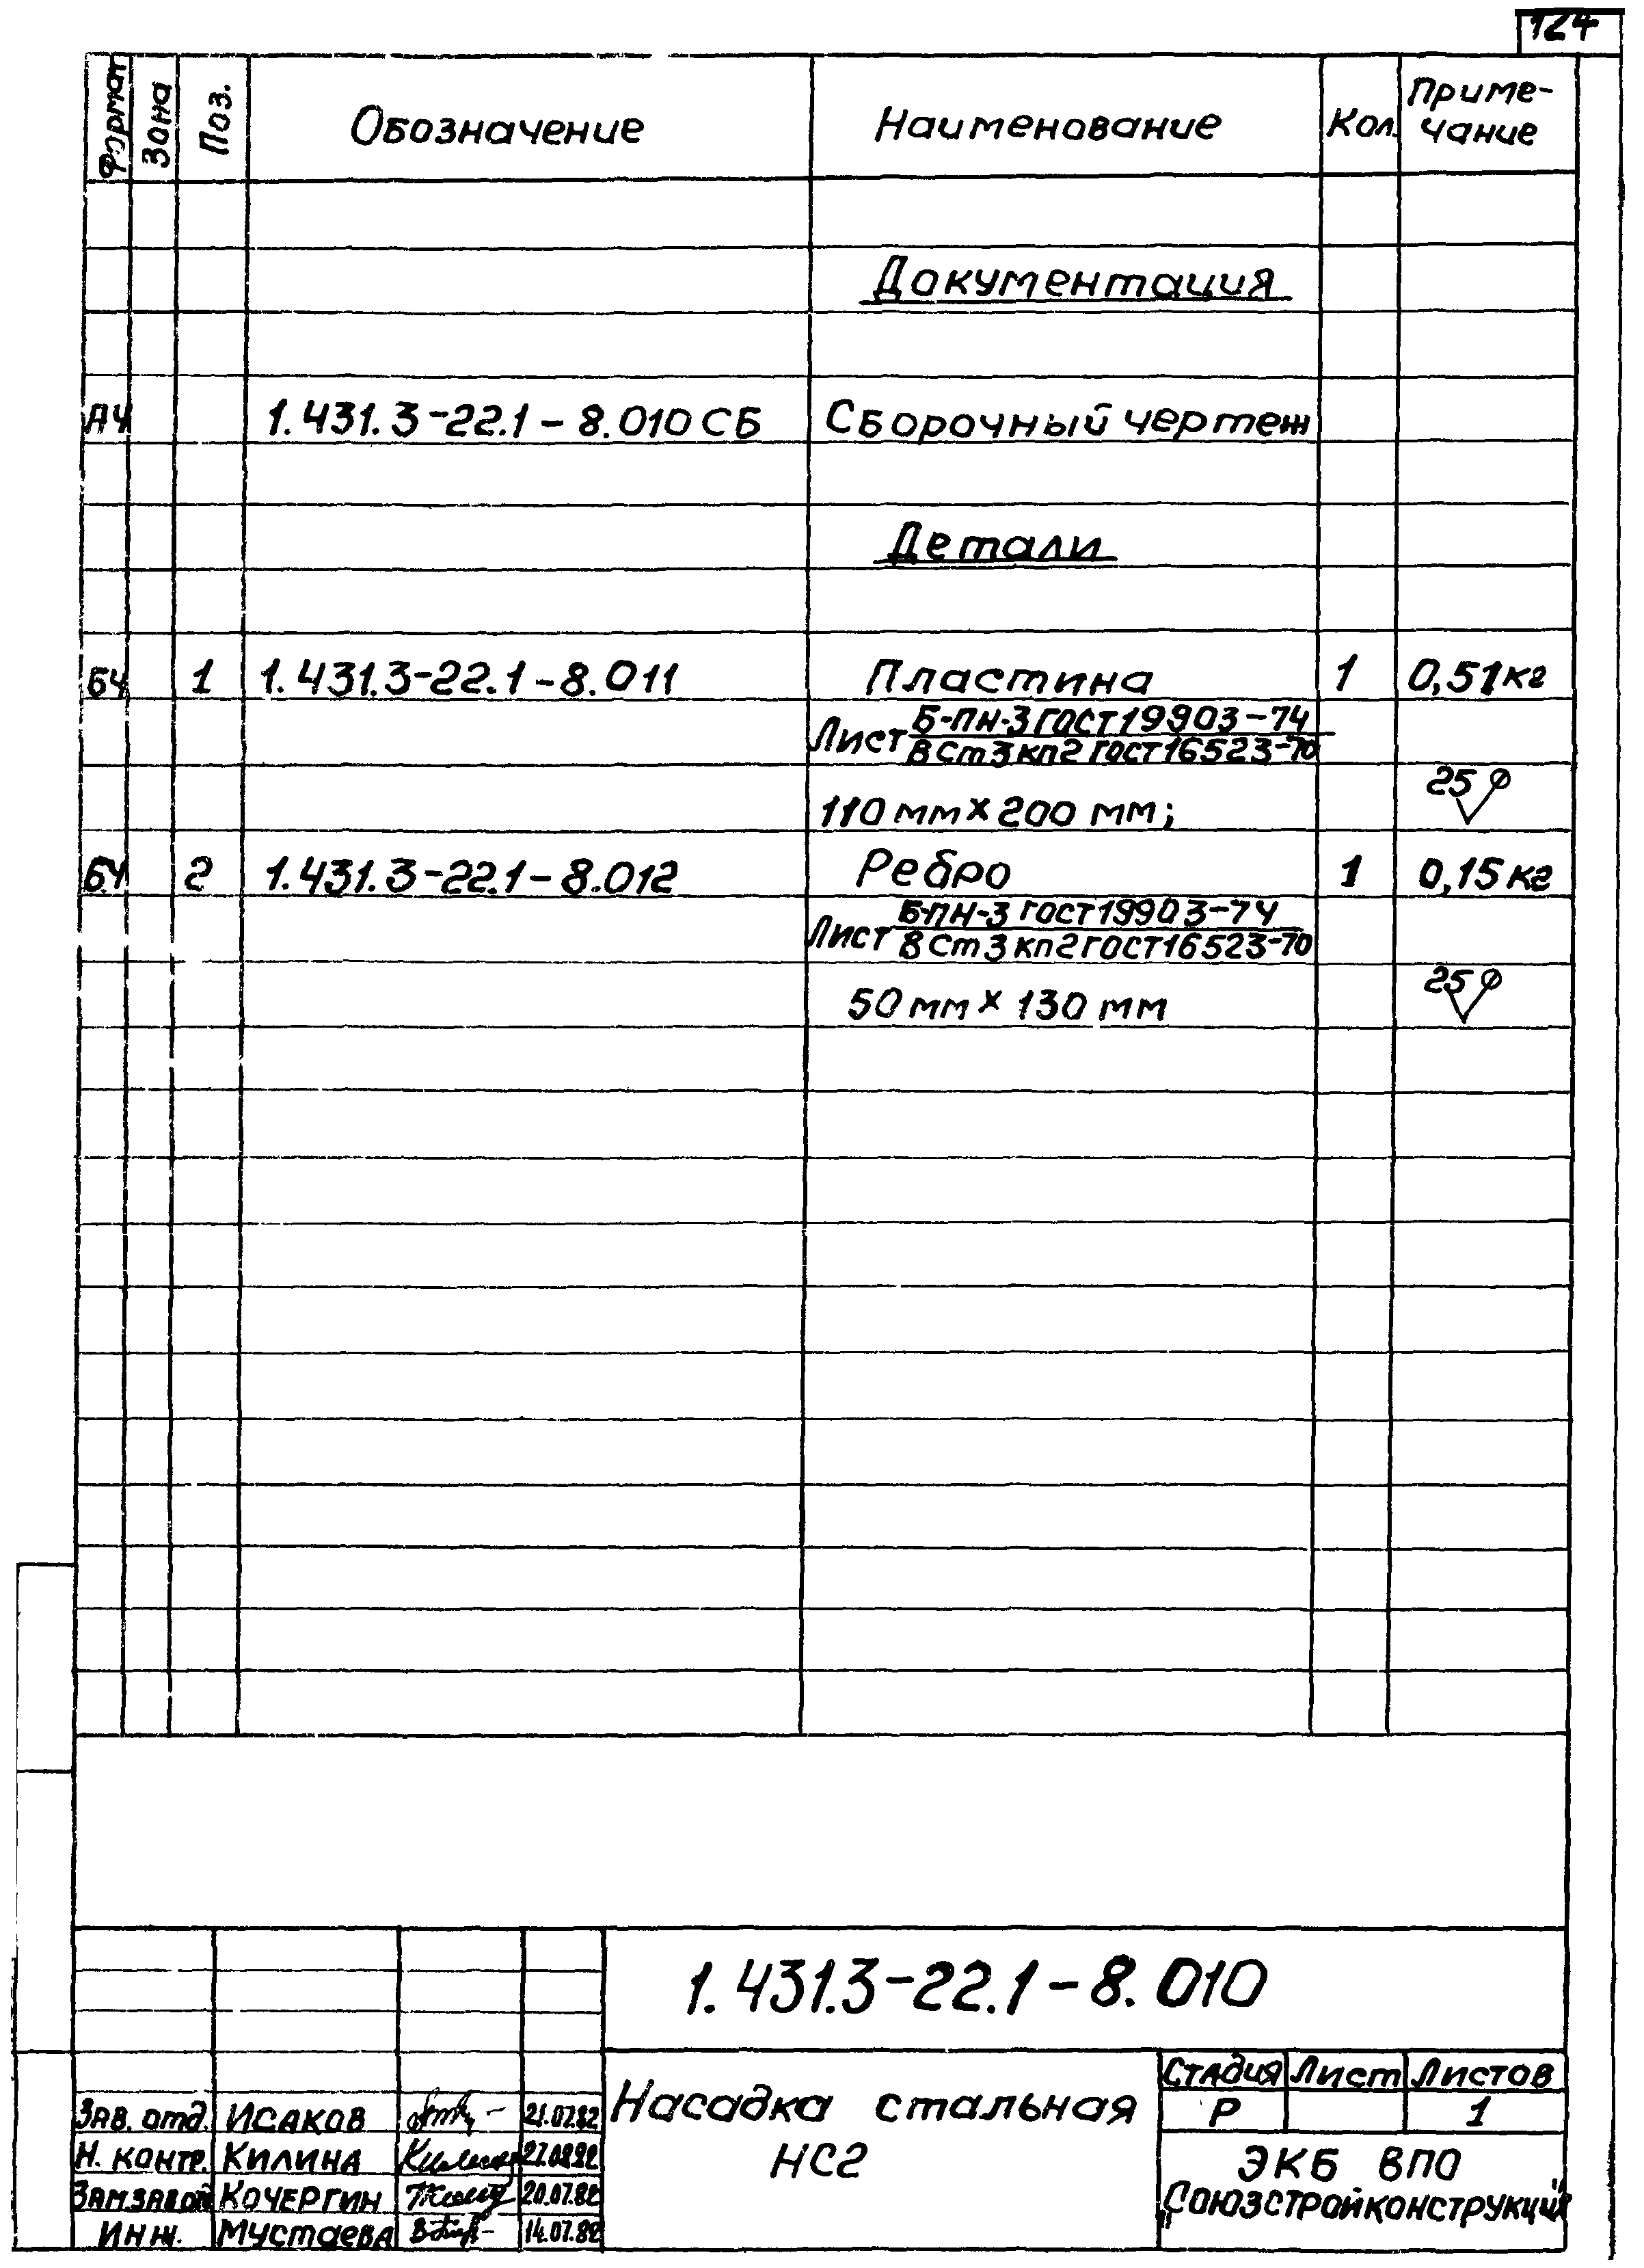 124
Формат Зона Поз. Обозначение Наименование Кол. Приме-
чание
Документация
А4 1.431.3-22.1-8.010 СБ Сборочный чертеж
Детали
БЧ 1 1.431.3-22.1-8.011 Пластина 1 0,51 кг
Лист Б-ПН-3 ГОСТ 19903-74
ВСт3кп2 ГОСТ 16523-70
110 мм х 200 мм; 25
БЧ 2 1.431.3-22.1-8.012 Ребро 1 0,15 кг
Лист Б-ПН-3 ГОСТ 19903-74
ВСт3кп2 ГОСТ 16523-70
50 мм х 130 мм 25
1.431.3-22.1-8.010
Стадия Лист Листов
Зав. отд. Исаков 21.07.82 Насадка стальная Р 1
Н. контр. Килина НС2 ЭКБ ВПО
Зам.зав.отд Кочергин 20.07.82 "Союзстройконструкция"
Инж. Мустаева 14.07.82